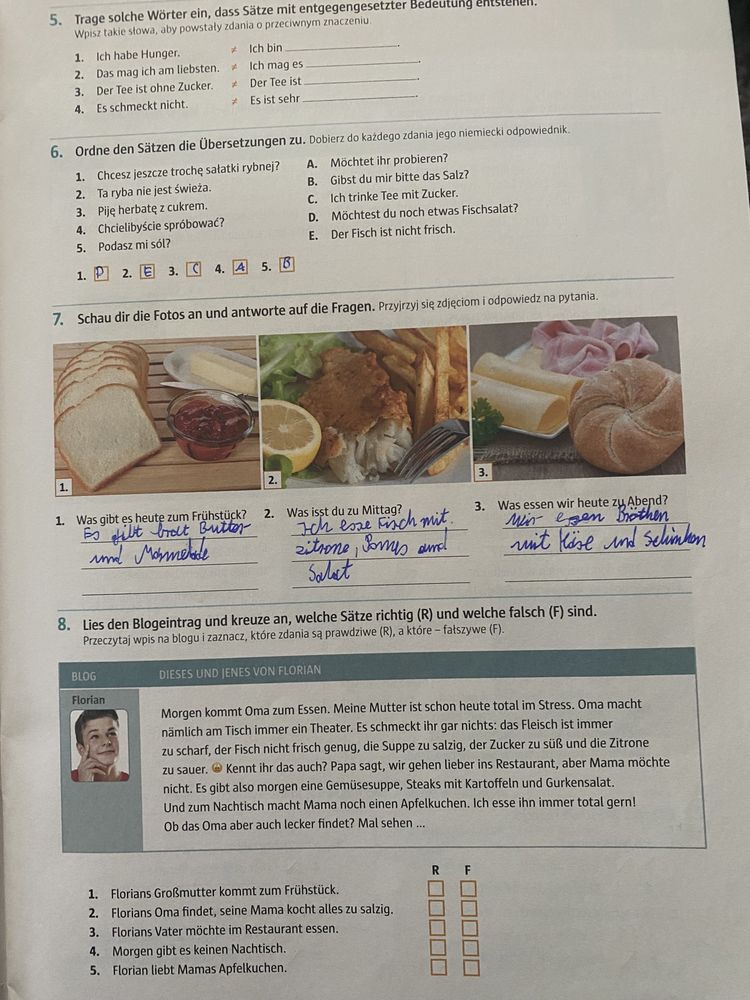 5. Trage solche Wörter ein, dass Sätze mit entgegengesetzter Bedeutung entstehen.
Wpisz takie słowa, aby powstały zdania o przeciwnym znaczeniu.
1. Ich habe Hunger. ≠ Ich bin ____.
2. Das mag ich am liebsten. ≠ Ich mag es ____.
3. Der Tee ist ohne Zucker. ≠ Der Tee ist ____.
4. Es schmeckt nicht. ≠ Es ist sehr ____.
6. Ordne den Sätzen die Übersetzungen zu. Dobierz do każdego zdania jego niemiecki odpowiednik.
1. Chcesz jeszcze trochę sałatki rybnej?
2. Ta ryba nie jest świeża.
3. Piję herbatę z cukrem.
4. Chcielibyście spróbować?
5. Podasz mi sól?
A. Möchtet ihr probieren?
B. Gibst du mir bitte das Salz?
C. Ich trinke Tee mit Zucker.
D. Möchtest du noch etwas Fischsalat?
E. Der Fisch ist nicht frisch.
1. D 2. E 3. C 4. A 5. B
7. Schau dir die Fotos an und antworte auf die Fragen. Przyjrzyj się zdjęciom i odpowiedz na pytania.
1.
2.
3.
1. Was gibt es heute zum Frühstück?
Es gibt brot Butter
und Mormelade
2. Was isst du zu Mittag?
Ich esse Fisch mit
zitrone, Pomys und
Salat
3. Was essen wir heute zu Abend?
Wir essen Bröthen
mit Käse und Schinken
8. Lies den Blogeintrag und kreuze an, welche Sätze richtig (R) und welche falsch (F) sind.
Przeczytaj wpis na blogu i zaznacz, które zdania są prawdziwe (R), a które – fałszywe (F).
BLOG DIESES UND JENES VON FLORIAN
Florian
Morgen kommt Oma zum Essen. Meine Mutter ist schon heute total im Stress. Oma macht
nämlich am Tisch immer ein Theater. Es schmeckt ihr gar nichts: das Fleisch ist immer
zu scharf, der Fisch nicht frisch genug, die Suppe zu salzig, der Zucker zu süß und die Zitrone
zu sauer. Kennt ihr das auch? Papa sagt, wir gehen lieber ins Restaurant, aber Mama möchte
nicht. Es gibt also morgen eine Gemüsesuppe, Steaks mit Kartoffeln und Gurkensalat.
Und zum Nachtisch macht Mama noch einen Apfelkuchen. Ich esse ihn immer total gern!
Ob das Oma aber auch lecker findet? Mal sehen ...
R F
1. Florians Großmutter kommt zum Frühstück.
2. Florians Oma findet, seine Mama kocht alles zu salzig.
3. Florians Vater möchte im Restaurant essen.
4. Morgen gibt es keinen Nachtisch.
5. Florian liebt Mamas Apfelkuchen.